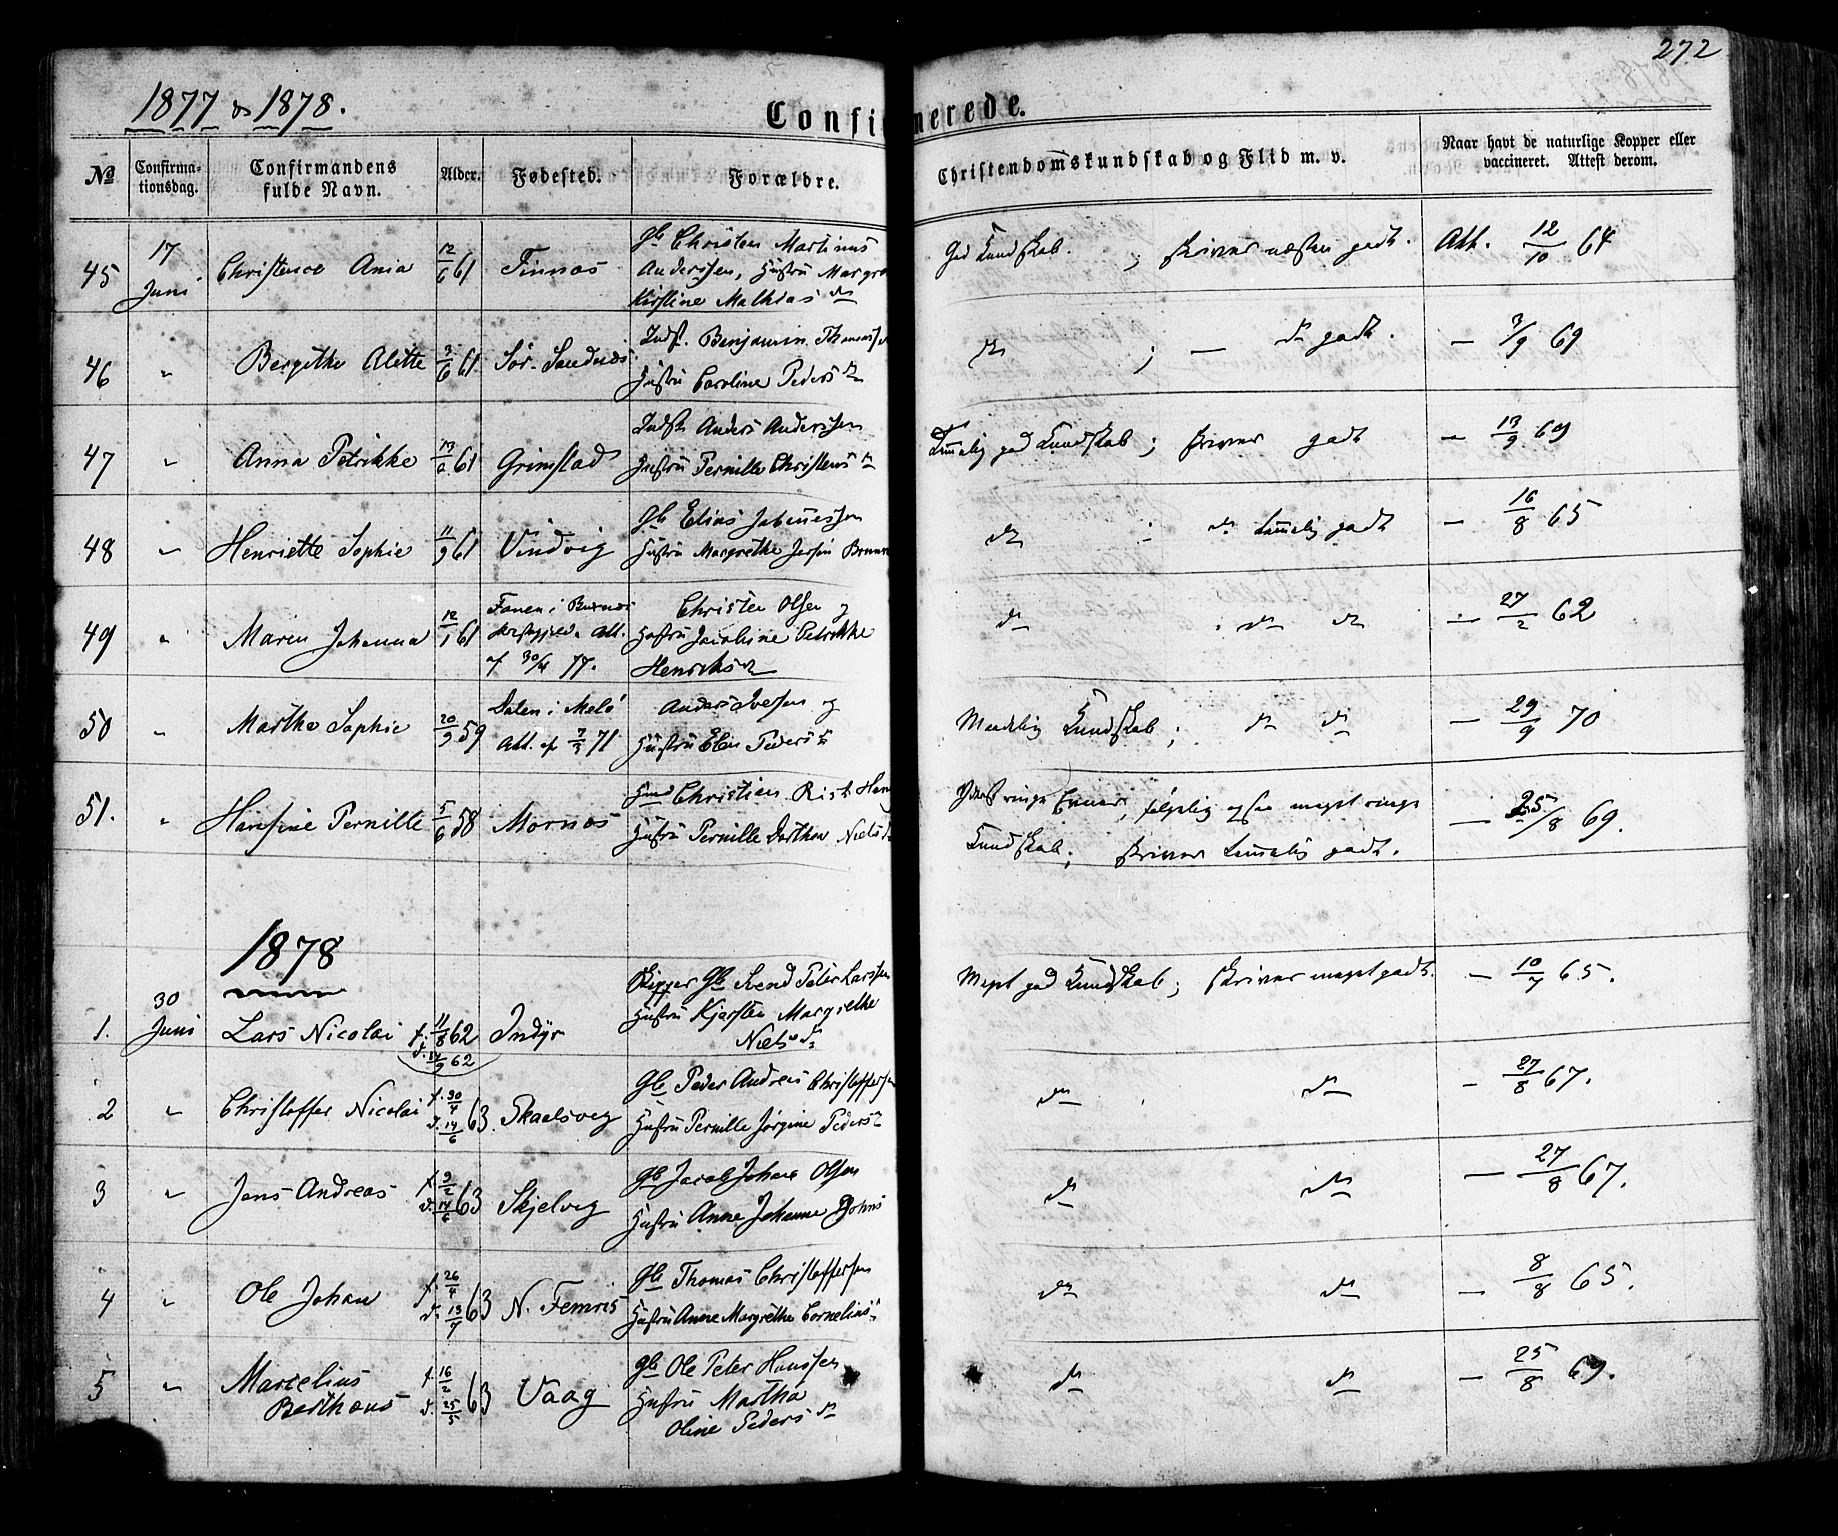 272
1877 & 1878.
Confirmerede.
№
Confirma-
tionsdag.
Confirmandens
fulde Navn.
Alder.
Fødested.
Forældre.
Christendomskundskab og Flid m. v.
Naar havt de naturlige Kopper eller
vaccineret. Attest derom.
45 17 Juni Christence Ania 12/6 61 Finnæs
Gb Christen Martinus
Anderssen, Hustru Margre
Kirstine Mathias dtr
God Kundskab. ; skriver næsten godt. Att. 12/10 64
46 " Bergitte Alette 3/6 61 Sör-Sandnæs
Indst. Benjamin Thomassen
Hustru Caroline Peders dtr
do ; — do godt. — 3/9 69
47 " Anna Petrikke 13/6 61 Grimstad
Indst. Anders Anderssen
Hustru Pernille Christens dtr
Temmelig god Kundskab ; skriver godt — 13/9 69
48 " Henriette Sophie 11/9 61 Vindvig
Gb Elias
Hustru Margrethe
do ; do temmelig godt — 16/8 65
49 " Maren Johanna 12/1 61
Att.
af 30/4 77.
Christen Olsen og
Hustru Jacobine Petrikke
Henriks dtr
do ; do do — 27/2 62
50 " Marthe Sophie 20/9 59
Dalen i Melö
Att. af 7/3 71
Anders Iversen og
Hustru Elen Peders dtr
Maadelig Kundskab ; do do — 29/9 70
51. " Hansine Pernille 5/6 58 Mornæs
Christien Rist
Hustru Pernille Dorthea Niels d
Yderst ringe Evner, følgelig ogsaa meget ringe
Kundskab ; skriver temmelig godt. — 25/8 69.
1878
1. 30 Juni Lars Nicolai f. 11/8 62 d. 14/9 62 Indyr
Skipper Gb Svend Peter Larssen
Hustru Kjersten Margrethe
Niels d.
Meget god Kundskab ; skriver meget godt. — 10/7 65.
2 " Christoffer Nicolai f. 30/4 d. 14/6 63. Skaelsvig
Gb Peder Andreas Christoffersen
Hustru Pernille Jørgine Peders d
do do — 27/8 67.
3 " Jens Andreas f. 9/2 d. 14/6 63 Skjelvig
Gb Jacob Johan Olsen
Hustru Anne Johanne Johns
do do — 27/8 67.
4 " Ole Johan f. 26/4 d. 13/7 63 N. Femris
Gb Thomas Christoffersen
Hustru Anne Margrethe Cornelius
do do — 8/8 65.
5 " Marcelius
Berthaus f. 16/2 d. 25/5 63 Vaag
Gb Ole Peter Hanssen
Hustru Martha
Oline Peders dtr
do do — 25/8 69.